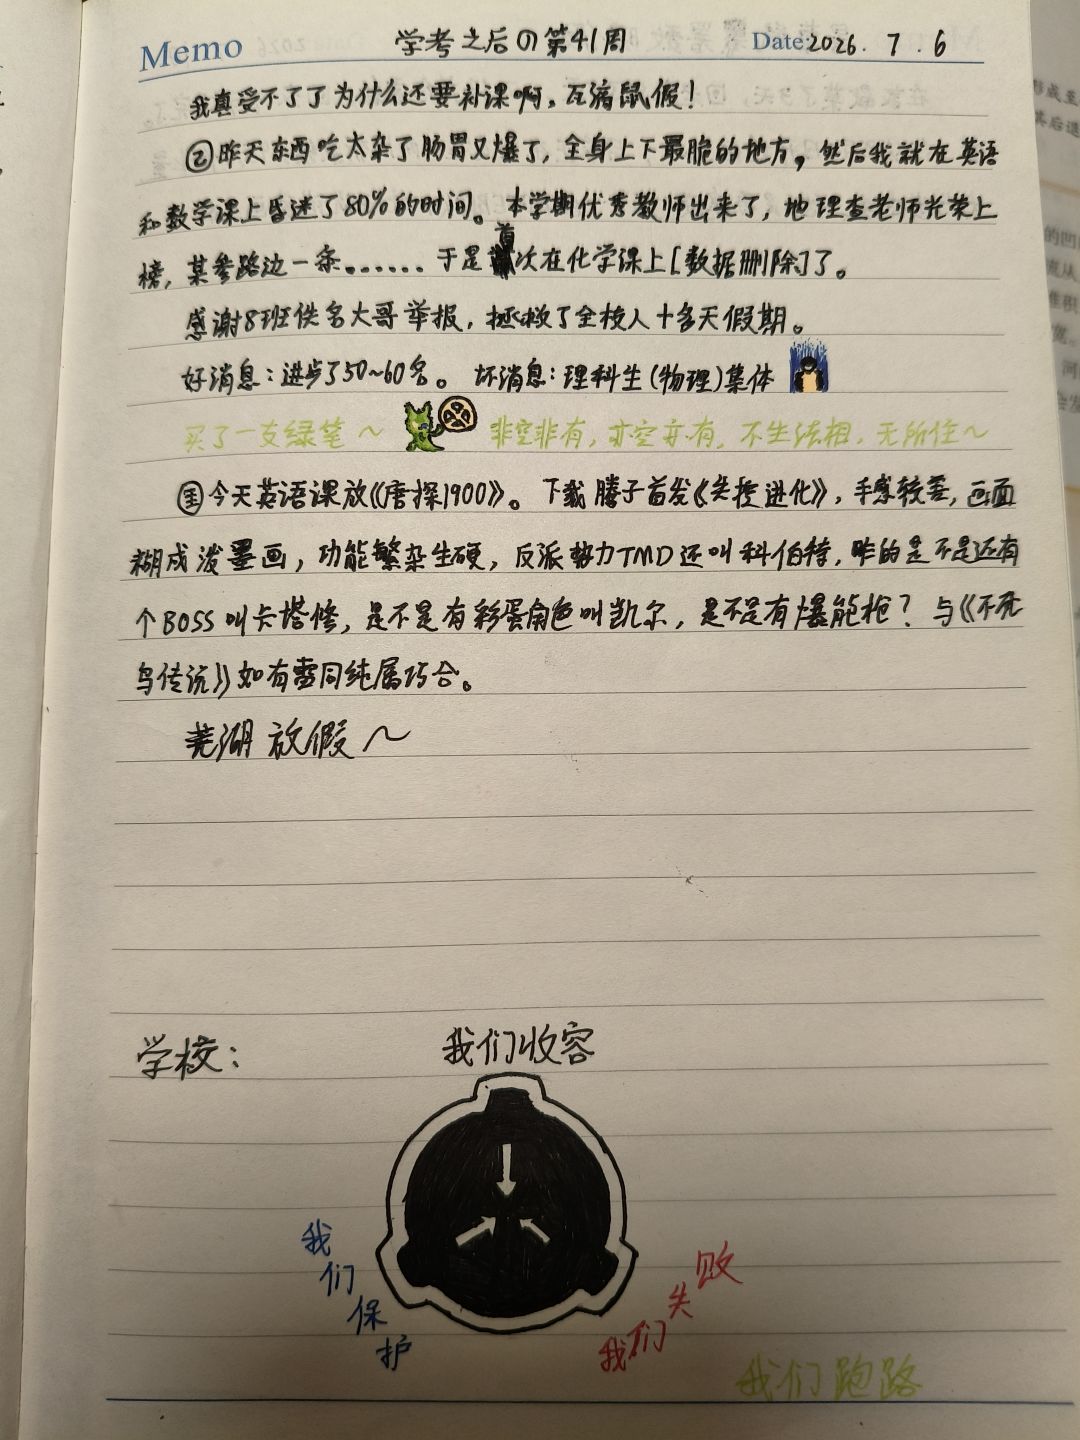 Memo 学考之后の第41周 Date: 2026. 7. 6
我真受不了了为什么还要补课啊,瓦滴鼠假!
②昨天东西吃太杂了肠胃又爆了,全身上下最脆的地方,然后我就在英语
和数学课上昏迷了80%的时间。本学期优秀教师出来了,地理查老师光荣上
榜,某参路边一条。……于是首次在化学课上[数据删除]了。
感谢8班佚名大哥举报,拯救了全校人十多天假期。
好消息:进步了50~60名。 坏消息:理科生(物理)集体
买了一支绿笔~ 非空非有,亦空亦有,不生法相,无所住~
今天英语课放《唐探1900》。下载腾子首发《失控进化》,手感较差,画面
糊成泼墨画,功能繁杂生硬,反派势力TMD还叫科伯特,咋的是不是还有
个BOSS叫卡塔修,是不是有彩蛋角色叫凯尔,是不是有爆能枪?与《不死
鸟传说》如有雷同纯属巧合。
芜湖放假~
学校: 我们收容
我们保护
我们失败
我们跑路